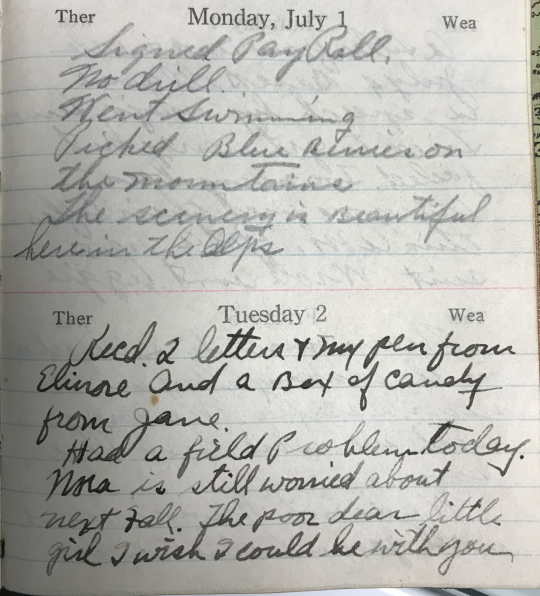 Ther Monday, July 1 Wea
Signed Pay Roll.
No drill.
Went Swimming
Picked Blue Berries on
the mountains
The scenery is Beautiful
here in the Alps
Ther Tuesday 2 Wea
Recd. 2 letters & my pen from
Elinore And a Box of Candy
from Jane.
Had a field Problem today.
Nora is still worried about
next Fall. The poor dear little
girl I wish I could be with you